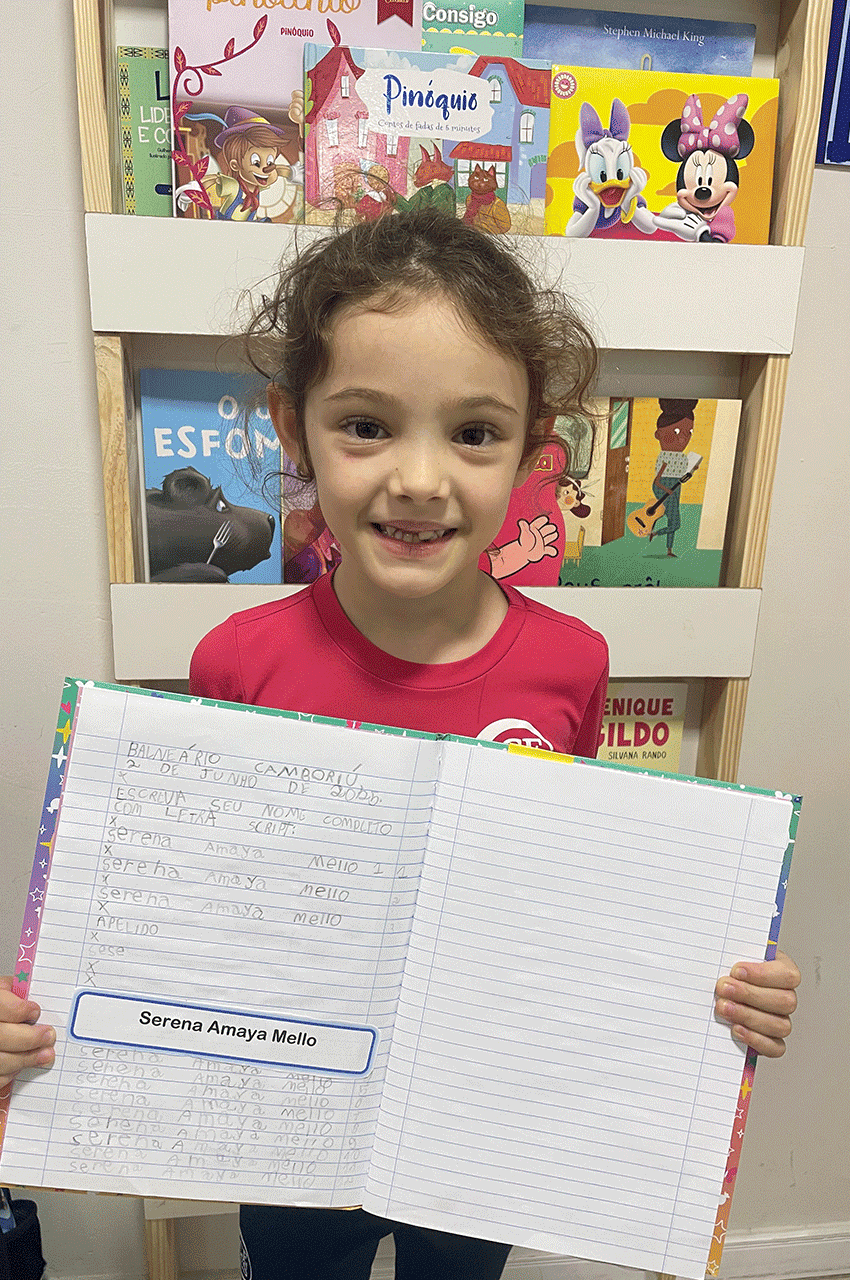 Pinóquio
PINÓQUIO
Consigo
Stephen Michael King
Pinóquio
Contos de fadas de 5 minutos
LIDE
E CO
O U
ESFOM
ENIQUE
GILDO
SILVANA RANDO
BALNEÁRIO CAMBORIU,
2 DE JUNHO DE
X
ESCREVA SEU NOME COMPLETO
COM LETRA SCRIPT:
X
serena Amaya Mello 1 1
X
serena Amaya Mello
X
serena Amaya Mello
X
APELIDO
X
cese
X
X
Serena Amaya Mello
serena Amaya Mello
serena Amaya Mello
serena Amaya Mello
serena Amaya Mello
serena Amaya Mello
serena Amaya Mello
serena Amaya Mello
serena Amaya Mello